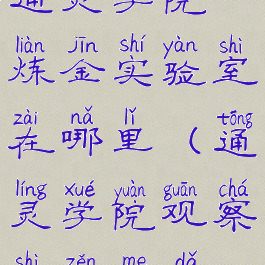 通灵学院
liàn jīn shí yàn shì
炼金实验室
zài nǎ lǐ tōng
在哪里（通
líng xué yuàn guān chá
灵学院观察
shì zěn me dǎ